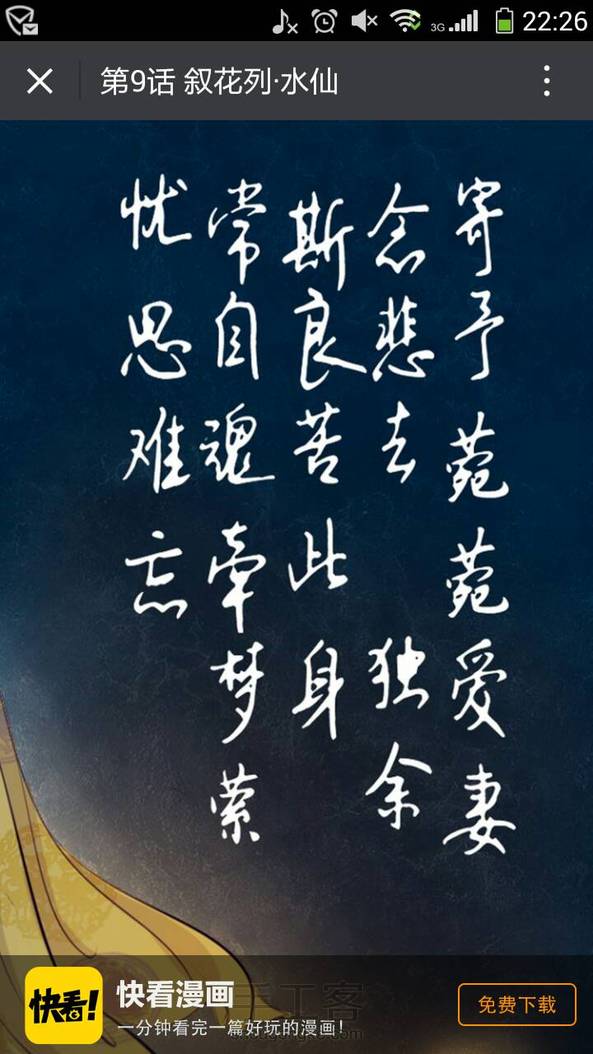 3G 22:26
第9话 叙花列·水仙
寄予菀菀爱妻
念悲去 独余
斯良苦此身
常自魂牵梦萦
忧思难忘
快看!
快看漫画
一分钟看完一篇好玩的漫画!
免费下载
手工客